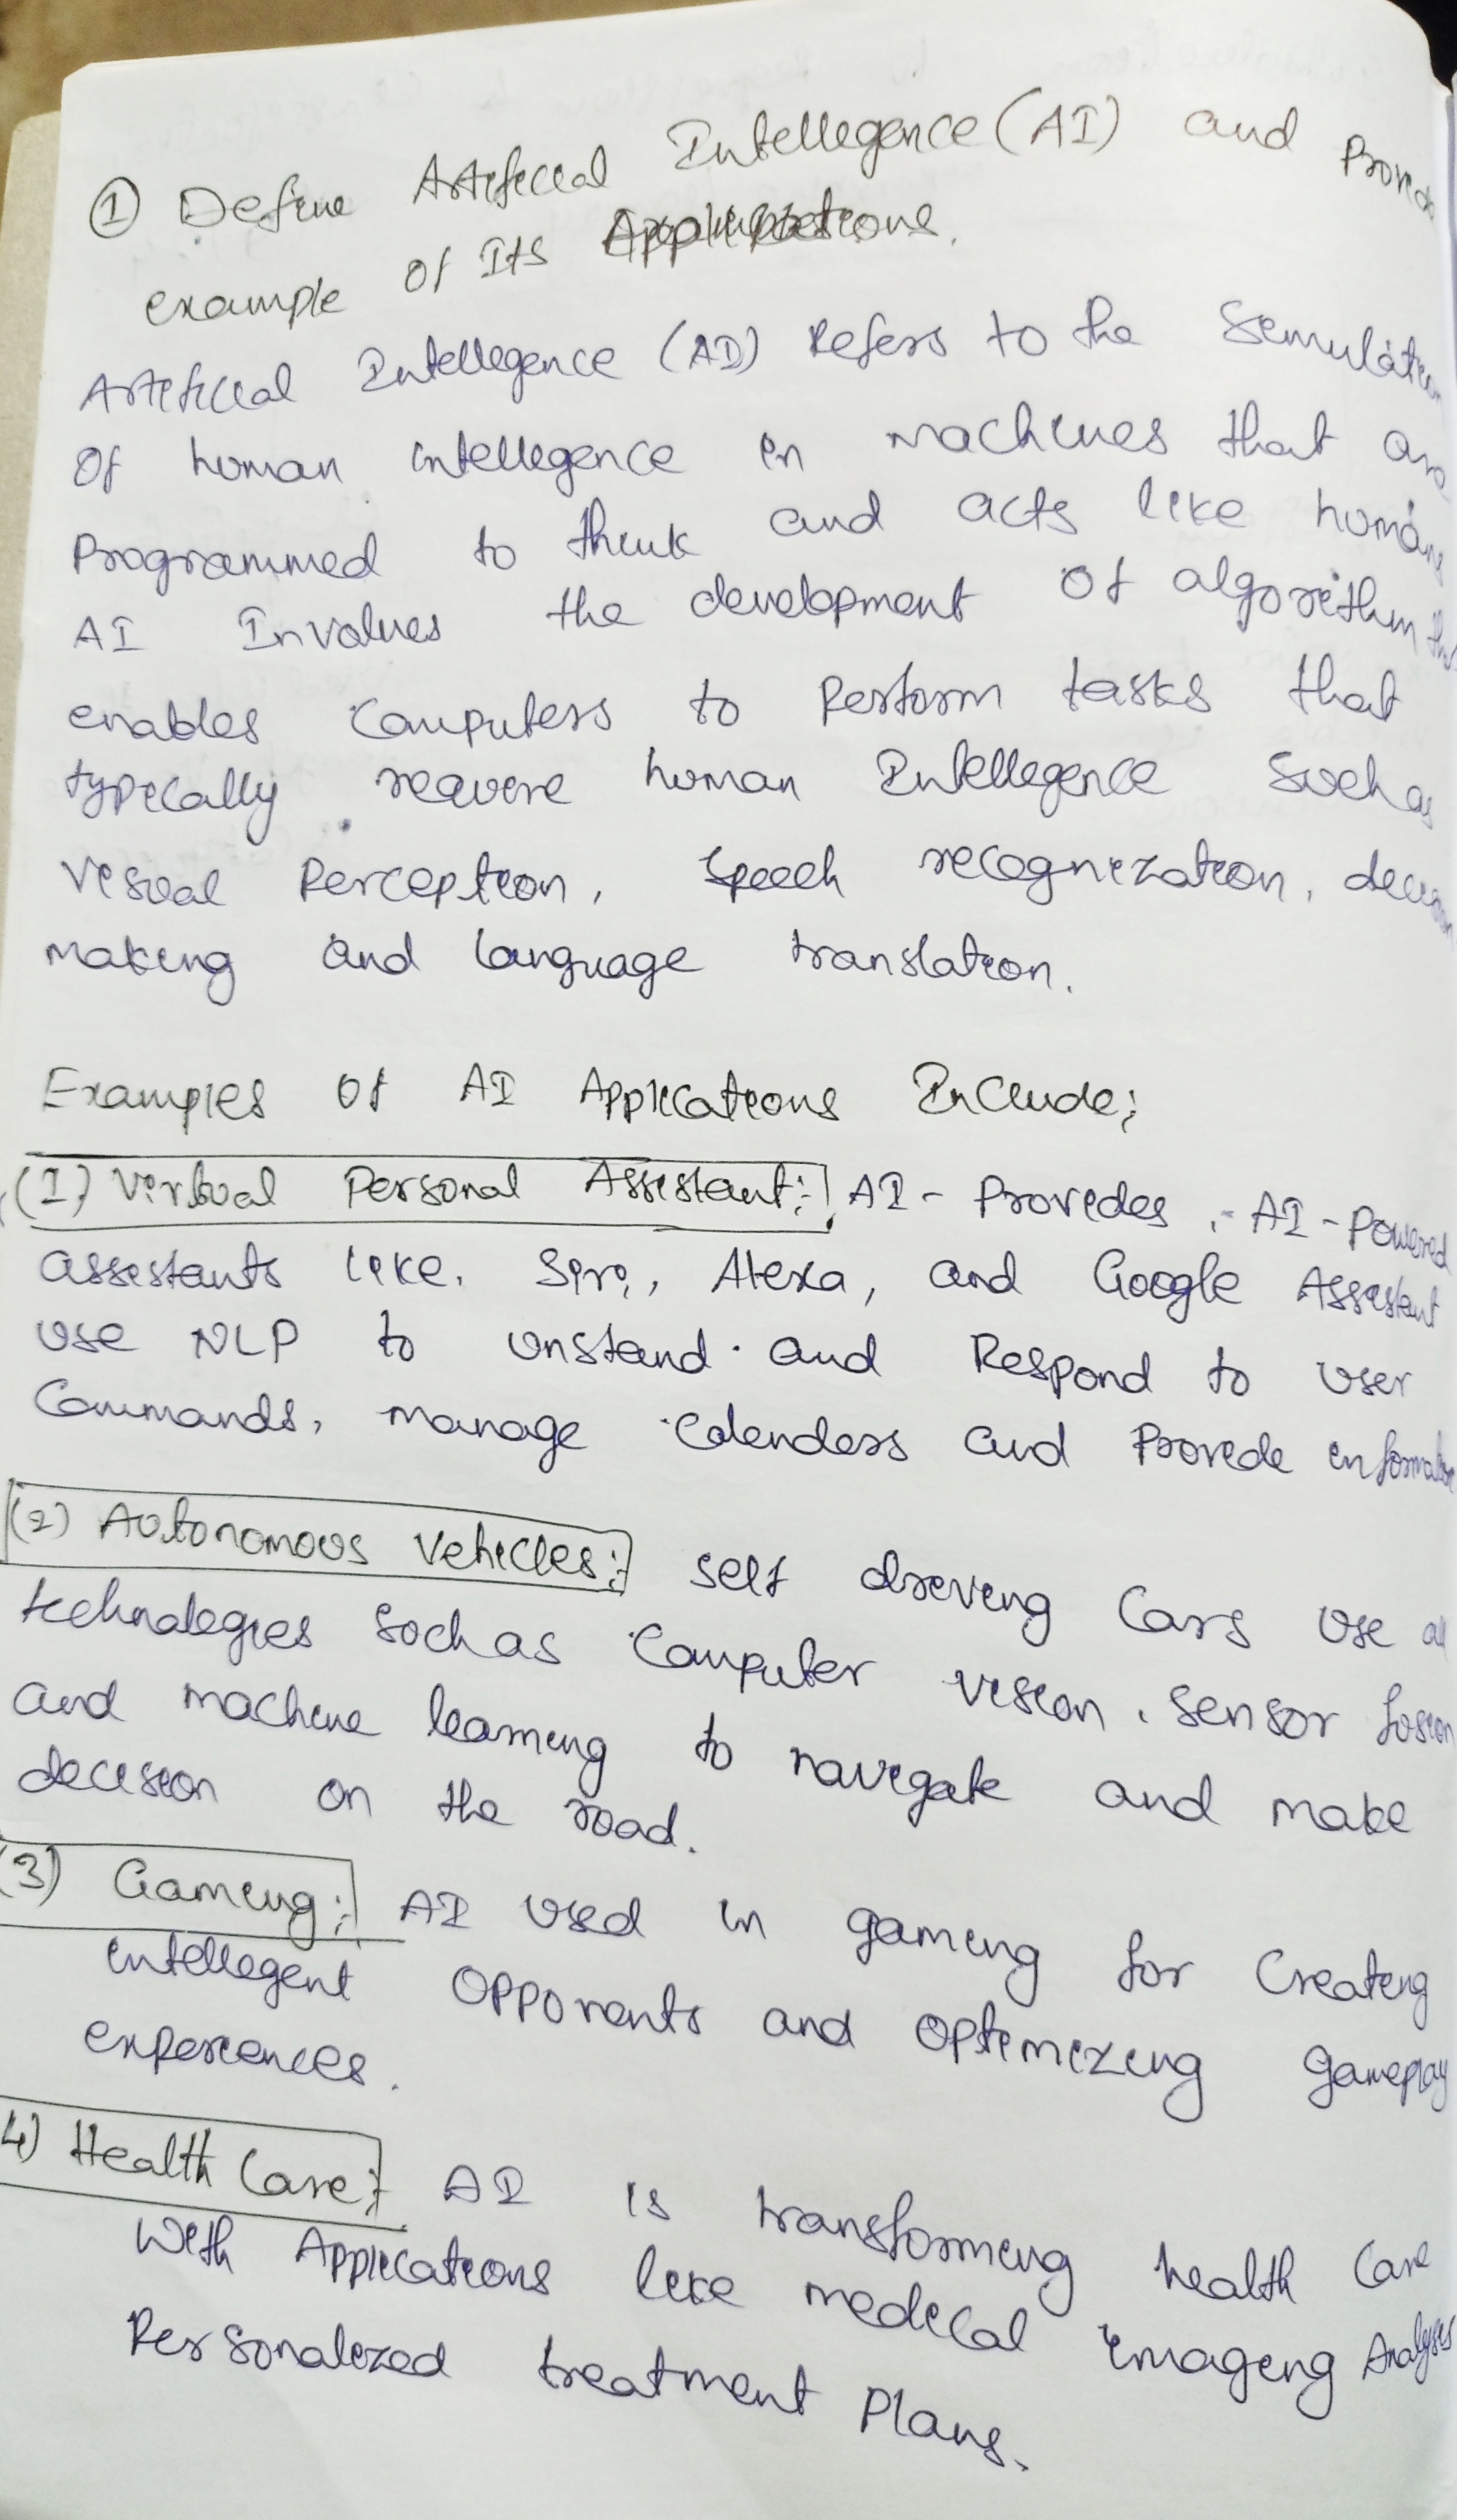 ① Define Artificial Intelligence (AI) and Provide
example of Its Applications.
Artificial Intelligence (AI) Refers to the Simulation
Of human intelligence in machines that are
Programmed to think and acts like humans
AI Involves the development of algorithm that
enables Computers to Perform tasks that
typically require human Intelligence Such as
Visual Perception, Speech recognization, decision
making and language translation.
Examples Of AI Applications Include;
(1) Virtual Personal Assistant:- AI - Provides, - AI - Powered
assistants like. Siri, Alexa, and Google Assistant
use NLP to unstand. and Respond to user
Commands, manage Calenders and Provide information
(2) Autonomous Vehicles:- Self driving Cars Use
technologies Such as Computer vision, Sensor fusion
and machine learning to navigate and make
decision on the road.
(3) Gaming:- AI used in gaming for Creating
intelligent Opponents and Optimizing gameplay
experiences.
4) Health Care:- AI is transforming health Care
With Applications like medical imaging Analysis
Personalized treatment Plans.